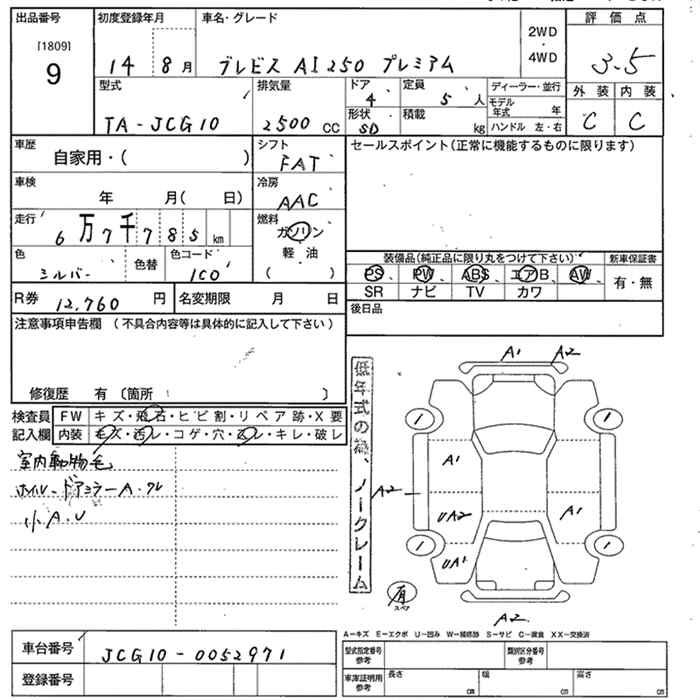 出品番号 初度登録年月 車名・グレード 2WD・4WD 評価点
[1809]
9 14 8月 ブレビス AI250 プレミアム 3.5
型式 排気量 ドア 4 定員 5人 ディーラー・並行 外装 内装
TA-JCG10 2500cc 形状 SD 積載 kg モデル年式 年 C C
ハンドル 左・右
車歴 自家用・( ) シフト FAT セールスポイント(正常に機能するものに限ります)
車検 年 月( 日) 冷房 AAC
走行 6万7千785km 燃料 ガソリン
軽油
( )
色 シルバー 色替 色コード 1C0 装備品(純正品に限り丸をつけて下さい) 新車保証書
PS PW ABS エアB AW 有・無
SR ナビ TV カワ
R券 12,760円 名変期限 月 日 後日品
注意事項申告欄 (不具合内容等は具体的に記入して下さい)
修復歴 有 〔箇所 〕
検査員 FW キズ・飛石・ヒビ割・リペア跡・X要
記入欄 内装 キズ・汚レ・コゲ・穴・スレ・キレ・破レ
室内動物毛
ホイル-ドアミラーA.クレ
小A.U
低年式の為、ノークレーム
A1 A2
1 1
A1
A2
UA2 A1
UA1
1 1
有
スペア
A2
A-キズ E-エクボ U-凹み W-補修跡 S-サビ C-腐食 XX-交換済
車台番号 JCG10-0052971 型式指定番号参考 類別区分番号参考
登録番号 車庫証明用参考 長さ cm 幅 cm 高さ cm